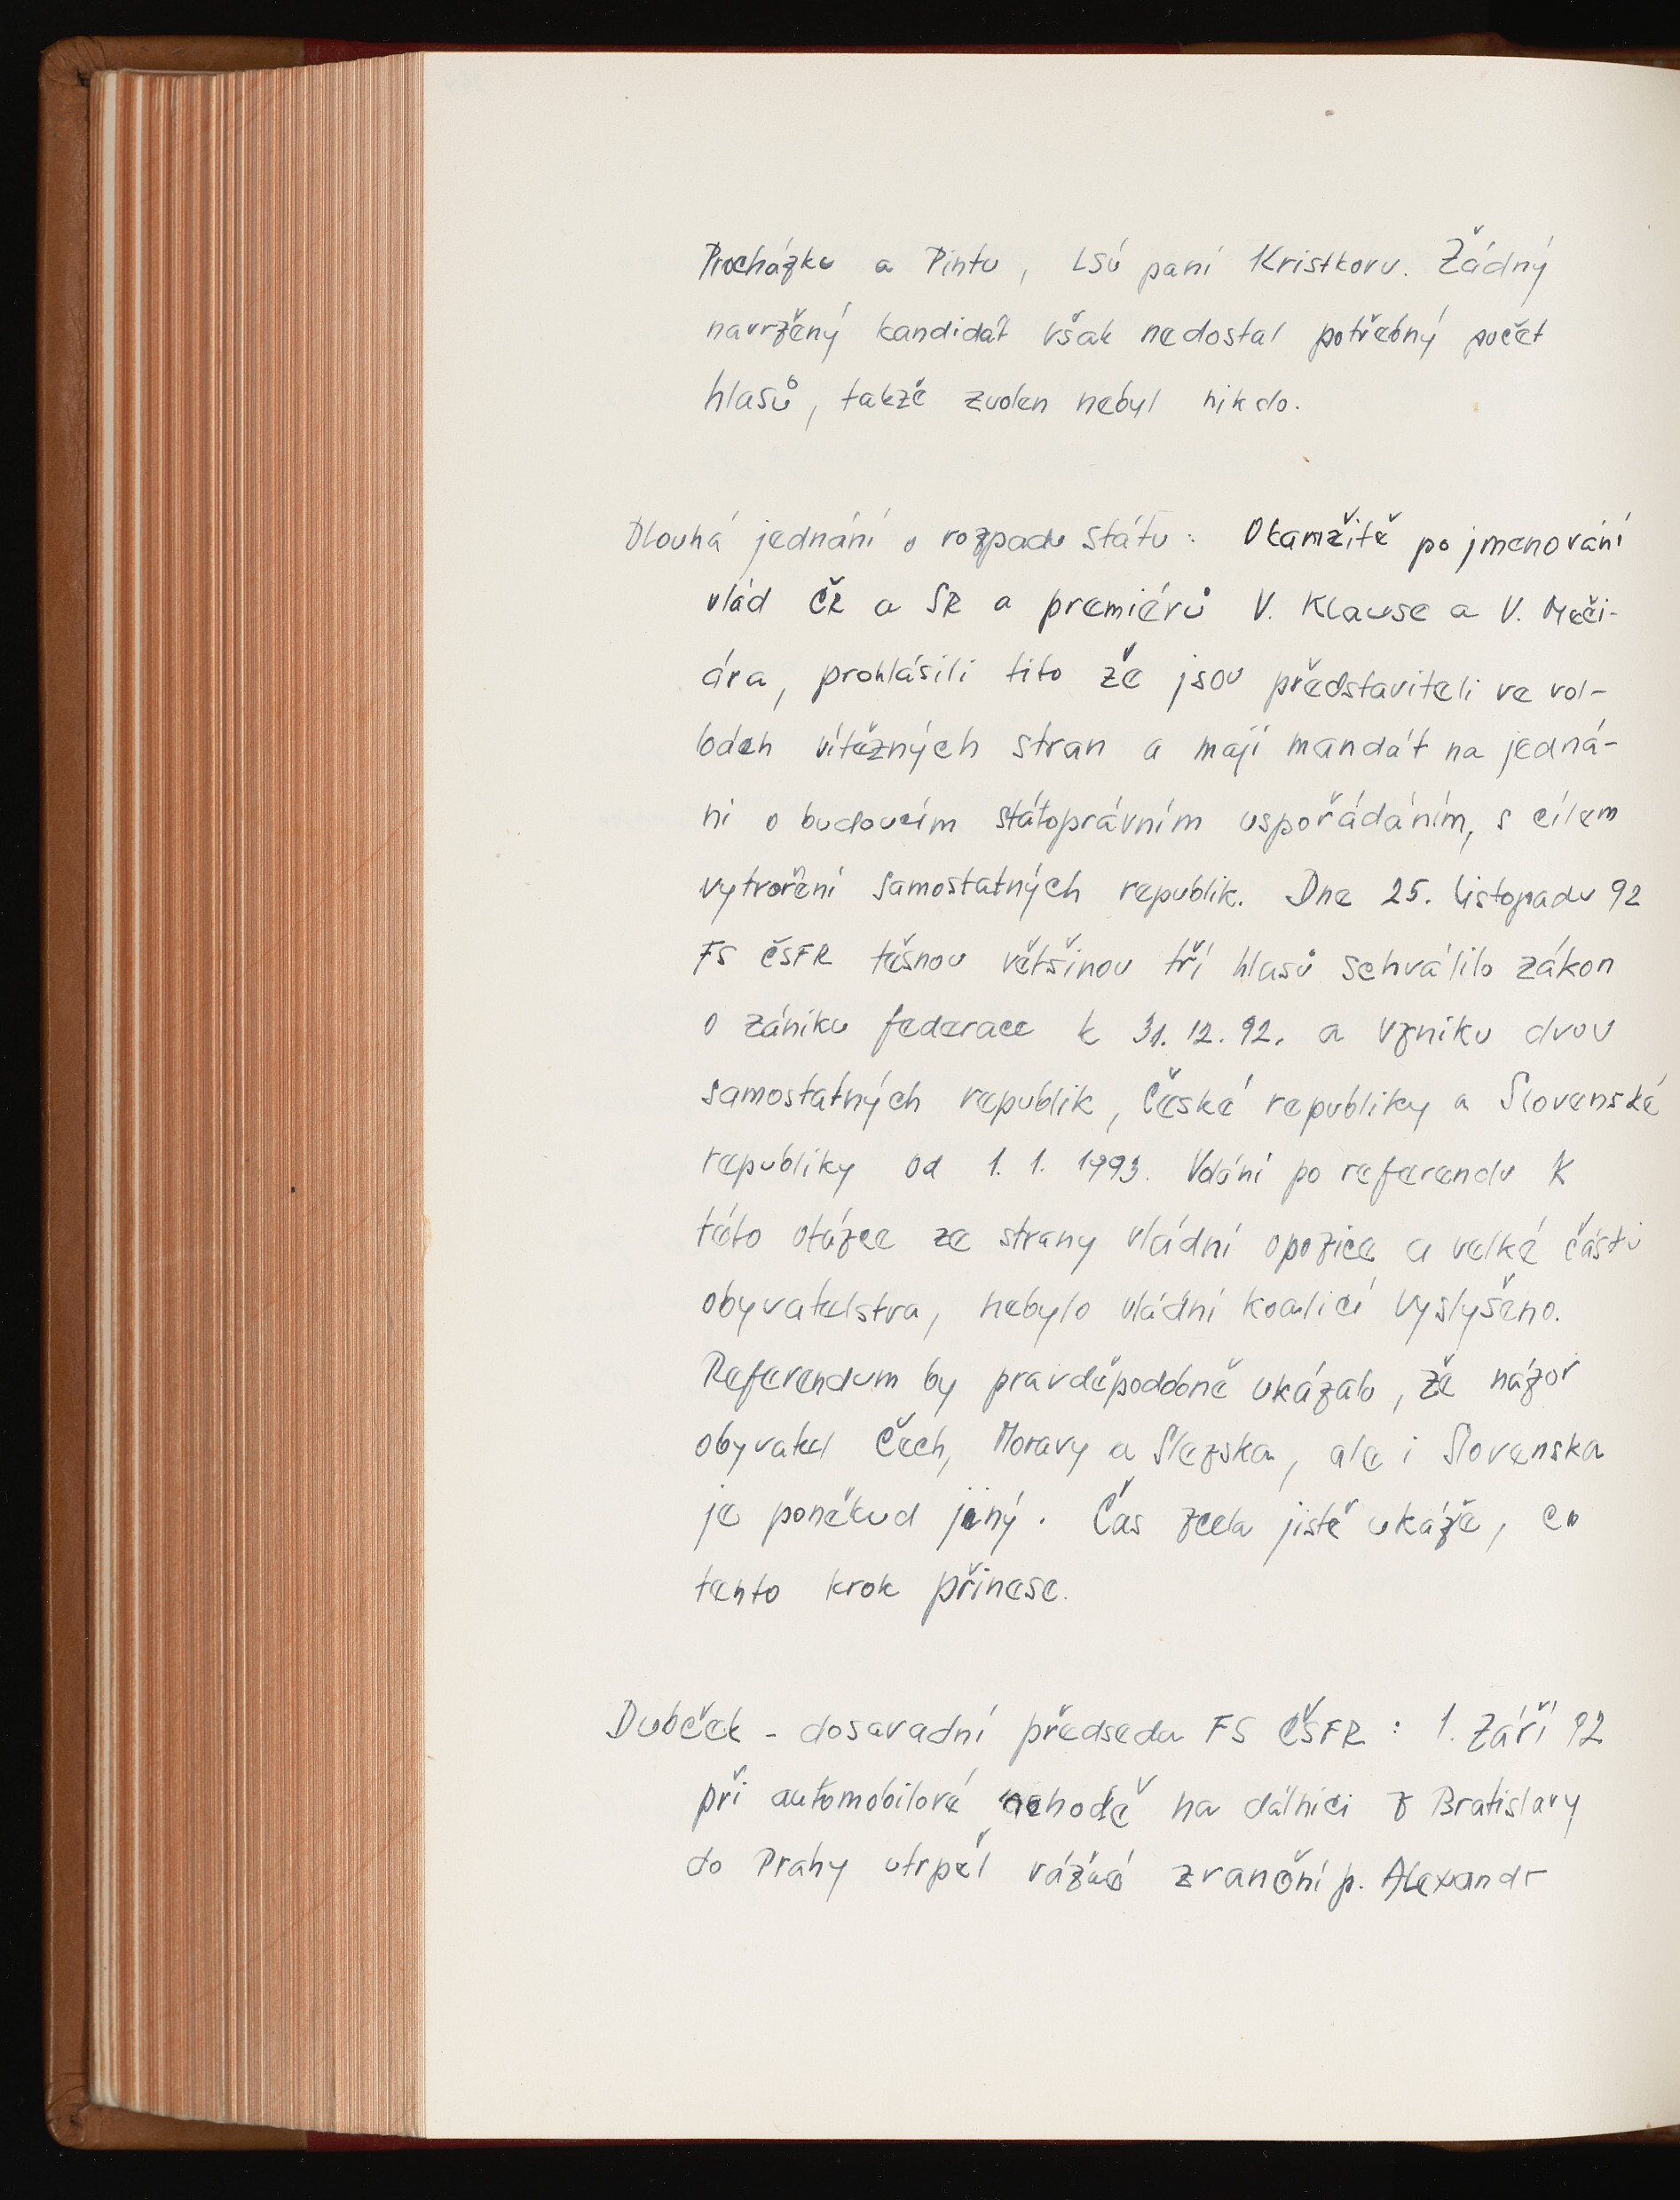 Procházku a Pintu, LSÚ paní Kristkovu. Žádný
navržený kandidát však nedostal potřebný počet
hlasů, takže zvolen nebyl nikdo.
Dlouhá jednání o rozpadu státu: Okamžitě po jmenování
vlád ČR a SR a premiérů V. Klause a V. Meči-
ára, prohlásili tito že jsou představiteli ve vol-
bách vítězných stran a mají mandát na jedná-
ní o budoucím státoprávním uspořádáním, s cílem
vytvoření samostatných republik. Dne 25. listopadu 92
FS ČSFR těsnou většinou tří hlasů schválilo zákon
o zániku federace k 31. 12. 92. a vzniku dvou
samostatných republik, České republiky a Slovenské
republiky od 1. 1. 1993. Volání po referendu k
této otázce ze strany vládní opozice a velké části
obyvatelstva, nebylo vládní koalicí vyslyšeno.
Referendum by pravděpodobně ukázalo, že názor
obyvatel Čech, Moravy a Slezska, ale i Slovenska
je poněkud jiný. Čas zcela jistě ukáže, co
tento krok přinese.
Dubček - dosavadní předseda FS ČSFR: 1. září 92
při automobilové nehodě na dálnici z Bratislavy
do Prahy utrpěl vážné zranění p. Alexandr